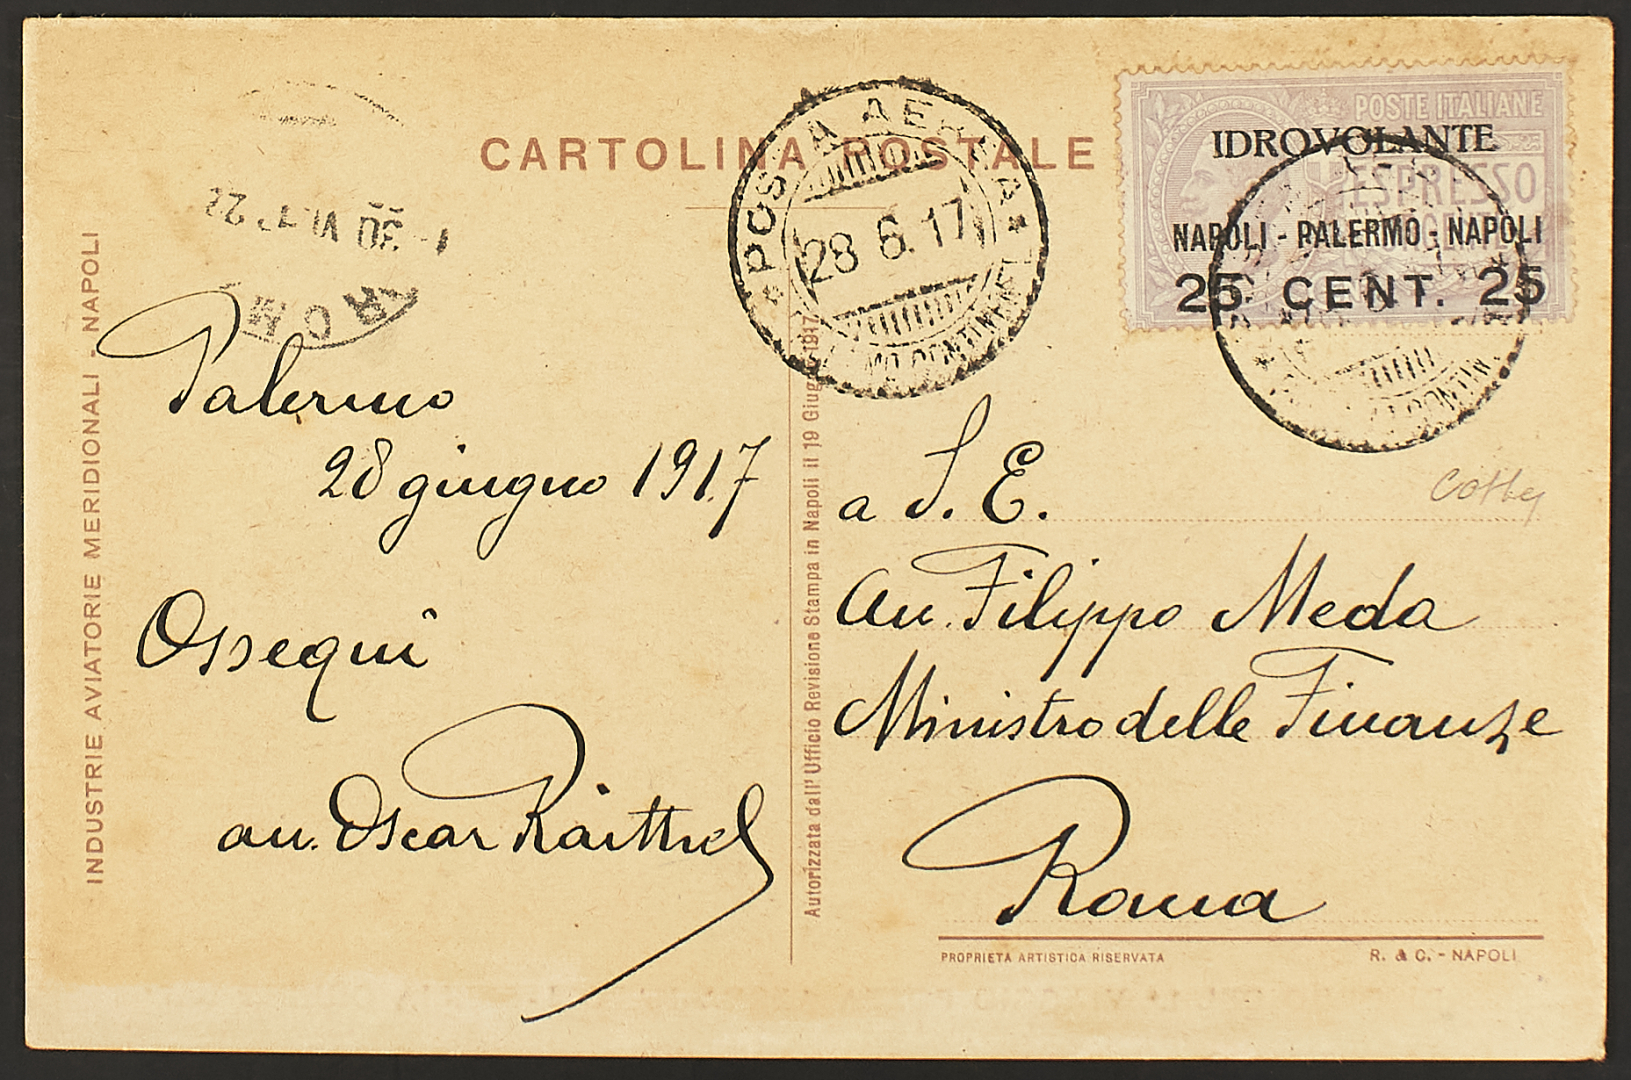 CARTOLINA POSTALE
POSTE ITALIANE
IDROVOLANTE
ESPRESSO
NAPOLI - PALERMO - NAPOLI
25 CENT. 25
* POSTA AEREA *
28 6. 17
30 VI 22
INDUSTRIE AVIATORIE MERIDIONALI - NAPOLI
Palermo
28 giugno 1917
Ossequi
au. Oscar Raitthel
Autorizzata dall' Ufficio Revisione Stampa in Napoli il 19 Giugno 1917
Cottey
a S. E.
au. Filippo Meda
Ministro delle Finanze
Roma
PROPRIETA ARTISTICA RISERVATA
R. & C. - NAPOLI